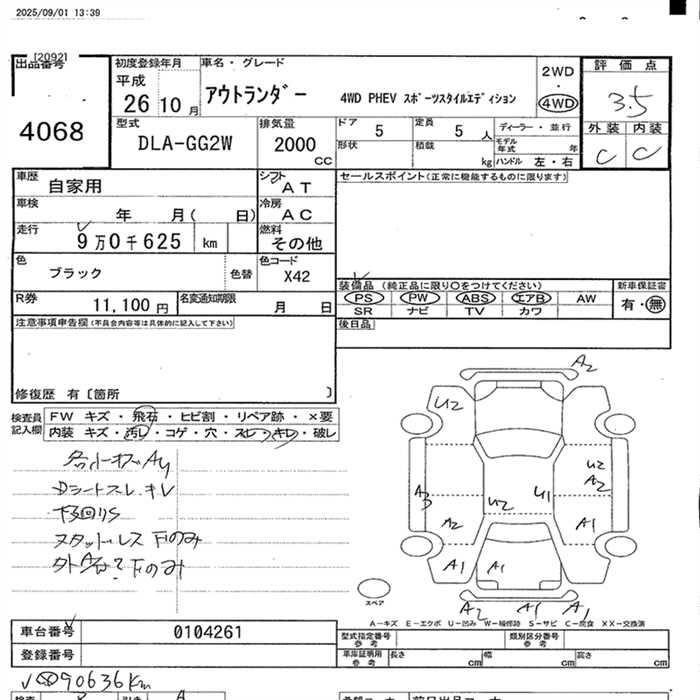 2025/09/01 13:39
[2092]
出品番号
4068
初度登録年月
平成
26 10 月
車名・グレード
アウトランダー
4WD PHEV スポーツスタイルエディション
2WD
・
4WD
評価点
3.5
外装 内装
C C
型式
DLA-GG2W
排気量
2000
cc
ドア 5
形状
定員 5 人
積載 kg
ディーラー・並行
モデル年式 年
ハンドル 左・右
車歴
自家用
シフト
AT
車検
年 月( 日)
冷房
AC
走行
9万0千625 km
燃料
その他
色
ブラック
色替
色コード
X42
R券
11,100 円
名変通知期限
月 日
セールスポイント(正常に機能するものに限ります)
装備品 (純正品に限り○をつけてください)
PS PW ABS エアB AW
SR ナビ TV カワ
新車保証書
有・無
後日品
注意事項申告欄(不具合内容等は具体的に記入して下さい)
修復歴 有〔箇所 〕
検査員
記入欄
FW キズ・飛石・ヒビ割・リペア跡・×要
内装 キズ・汚レ・コゲ・穴・スレ・キレ・破レ
Dシートスレ.キレ
下回りS
スタットレス 下のみ
A2
U2
U2
A2
A3
U2
U1
A2
A1
A1
A1
A2
A1
A1
スペア
A−キズ E−エクボ U−凹み W−補修跡 S−サビ C−腐食 XX−交換済
車台番号
0104261
登録番号
型式指定番号
参考
類別区分番号
参考
車庫証明用
参考
長さ cm
幅 cm
高さ cm
90636Km